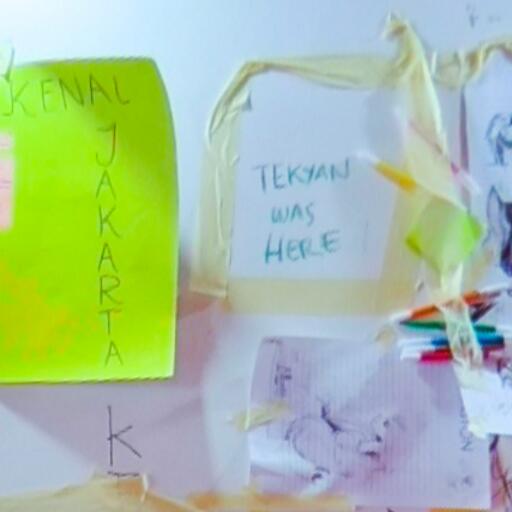 KENAL
JAKARTA
K
TEKYAN
WAS
HERE